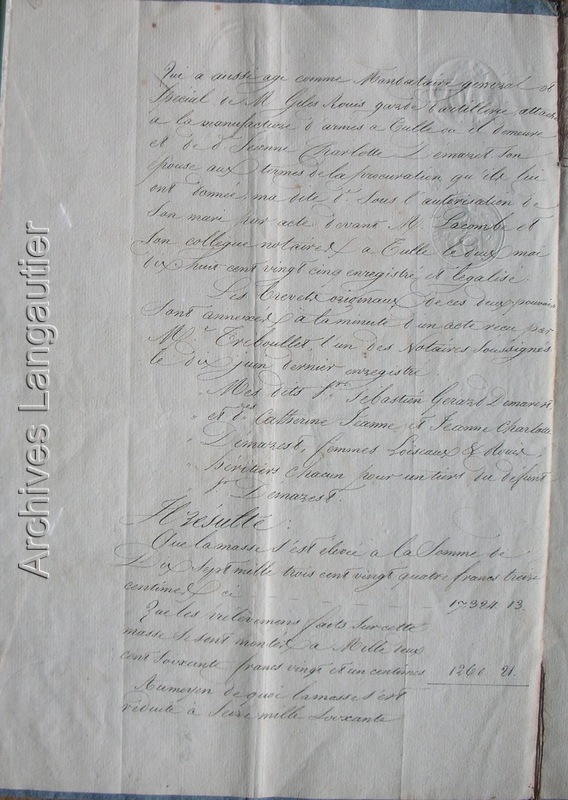 Qui a aussi agi comme Mandataire general et
Special de M. Giles Rouis garde d'artillerie attaché
a la manufacture d'armes a Tulle ou il demeure
et de d.e Jeanne Charlotte Demarest Son
epouse aux termes de la procuration qu'ils lui
ont donnée, ma dite d.e Sous l'autorisation de
Son mari par acte devant M. Lacombe et
Son collegue notaires a Tulle le deux mai
dix huit cent vingt cinq enregistré et légalisé.
Les Brevets originaux de ces deux pouvoirs
Sont annexés a la minute d'un acte reçu par
M.e Triboullet l'un des Notaires Soussignés
le dix juin dernier enregistré.
Mes dits S.rs Sebastien Gerard Demarest
et d.es Catherine Jeanne et Jeanne Charlotte
Demarest, femmes Loiseaux & Rouis
heritiers chacun pour un tiers du défunt
S.r Demarest.
Il résulte :
Que la masse s'est élevée à la Somme de
Dix Sept mille trois cent vingt quatre francs treize
centimes ci 17324 13.
Que les prélèvemens faits Sur cette
masse Se sont montés à Mille deux
cent Soixante francs vingt et un centimes 1260 21.
Au moyen de quoi la masse s'est
réduite à Seize mille Soixante
Archives Langautier